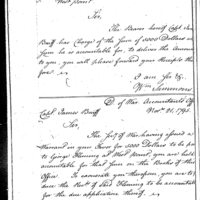 West point
Sir,
The Bearer hereof Capt. Jas
Bruff has Charge of the Sum of 5000 Dollars
him be accountable for, to deliver the Amount
to you, you will please forward your Receipts there
for.
I am Sir &c.
Wm Simmons
D. of War. Accountants Off
Novr 21, 1795.
Capt. James Bruff
Sir,
The Secy of War having passed a
Warrant in your Favor for 5000 Dollars to be paid
to George Fleming at West point, you are held
accountable for that Sum on the Books of this
Office. To exonerate you therefrom, you are to
the Rect of Said Fleming to be accountable
for the due application thereof.